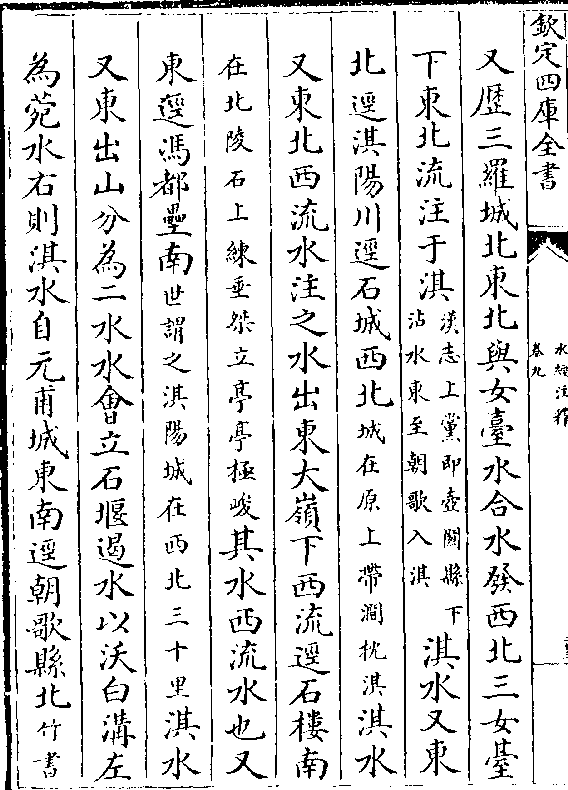 欽定四庫全書
水經注釋
卷九
又歴三羅城北東北與女臺水合水發西北三女臺
下東北流注于淇漢志上黨即壺闗縣下
沾水東至朝歌入淇淇水又東
北逕淇陽川逕石城西北城在原上帶澗枕淇淇水
又東北西流水注之水出東大嶺下西流逕石樓南
在北陵石上練垂桀立亭亭極峻其水西流水也又
東逕馮都壘南世謂之淇陽城在西北三十里淇水
又東出山分為二水水會立石堰遏水以沃白溝左
為菀水右則淇水自元甫城東南逕朝歌縣北竹書